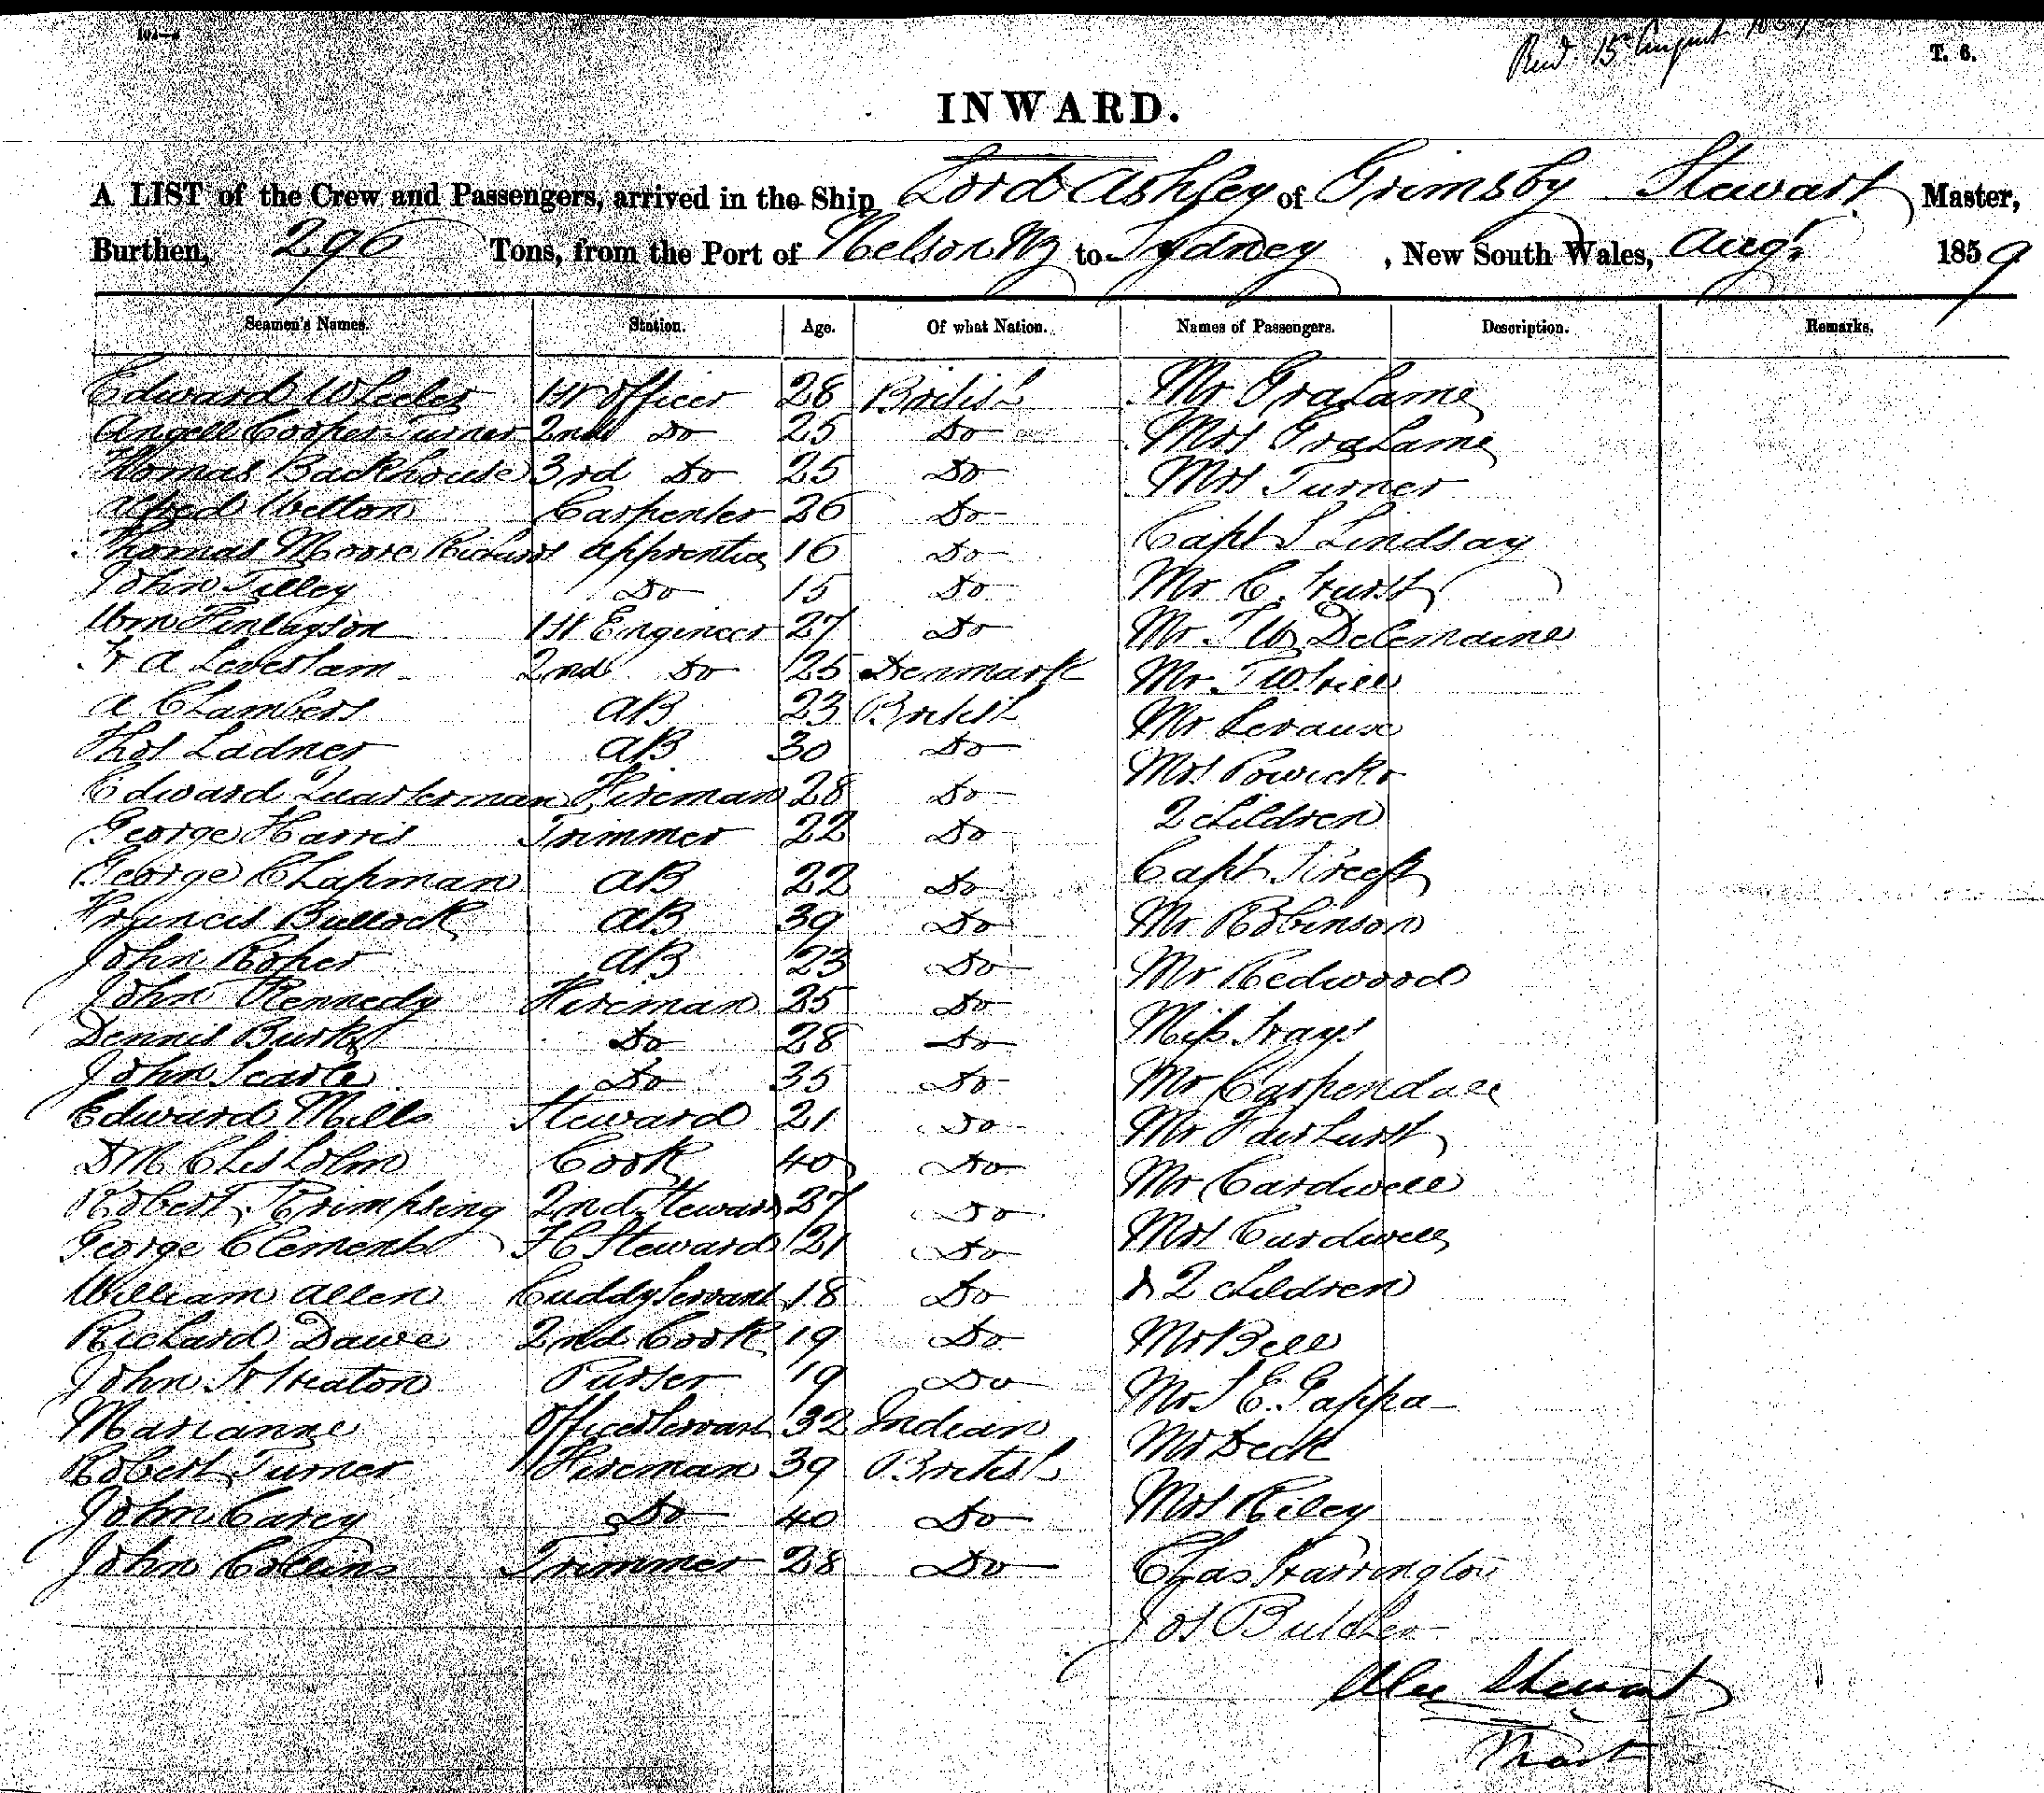 Recd. 15 August 1859
T. 6.
INWARD.
A LIST of the Crew and Passengers, arrived in the Ship Lord Ashley of Grimsby Stewart Master,
Burthen, 296 Tons, from the Port of Nelson NZ to Sydney , New South Wales, Augt 1859
Seamen's Names. Station. Age. Of what Nation. Names of Passengers. Description. Remarks.
Edward Wheeler 1st Officer 28 British Mr Grahame
Angell Cooper Turner 2nd Do 25 Do Mrs Grahame
Thomas Backhouse 3rd Do 25 Do Mrs Turner
Alfred Welton Carpenter 26 Do Capt S Lindsay
Thomas Moore Richards Apprentice 16 Do
John Tilley Do 15 Do Mr C. Hurst
Wm Finlayson 1st Engineer 27 Do Mr T W Delemaine
Fr A 2nd Do 25 Denmark Mr T
A Chambers AB 23 British Mr
Thos Ladner AB 30 Do Mrs Powicke
Edward Quarterman Fireman 28 Do 2 children
George Harris Trimmer 22 Do
George Chapman AB 22 Do Capt Kreeft
Francis Bullock AB 39 Do Mr Robinson
John Roper AB 23 Do Mr Redwood
John Kennedy Fireman 25 Do
Dennis Burke Do 28 Do Miss Hays
John Searle Do 35 Do Mr Carpendale
Edward Mills Steward 21 Do Mr Fairhurst
D M Chisholm Cook 40 Do Mr Cardwell
Robert 2nd Steward 27 Do
George Clements FC Steward 21 Do Mrs Cardwell
William Allen Cuddy Servant 18 Do & 2 children
Richard Dawe 2nd Cook 19 Do Mr Bell
John Fr Heaton Purser 19 Do Mr S E. Gappa
Marianne Officers Servant 32 Indian Mr Deck
Robert Turner Fireman 39 British
John Carey Do 40 Do Mrs Riley
John Collins Trimmer 28 Do Chas Harrington
Jos Butcher
Alex Stewart
Mast